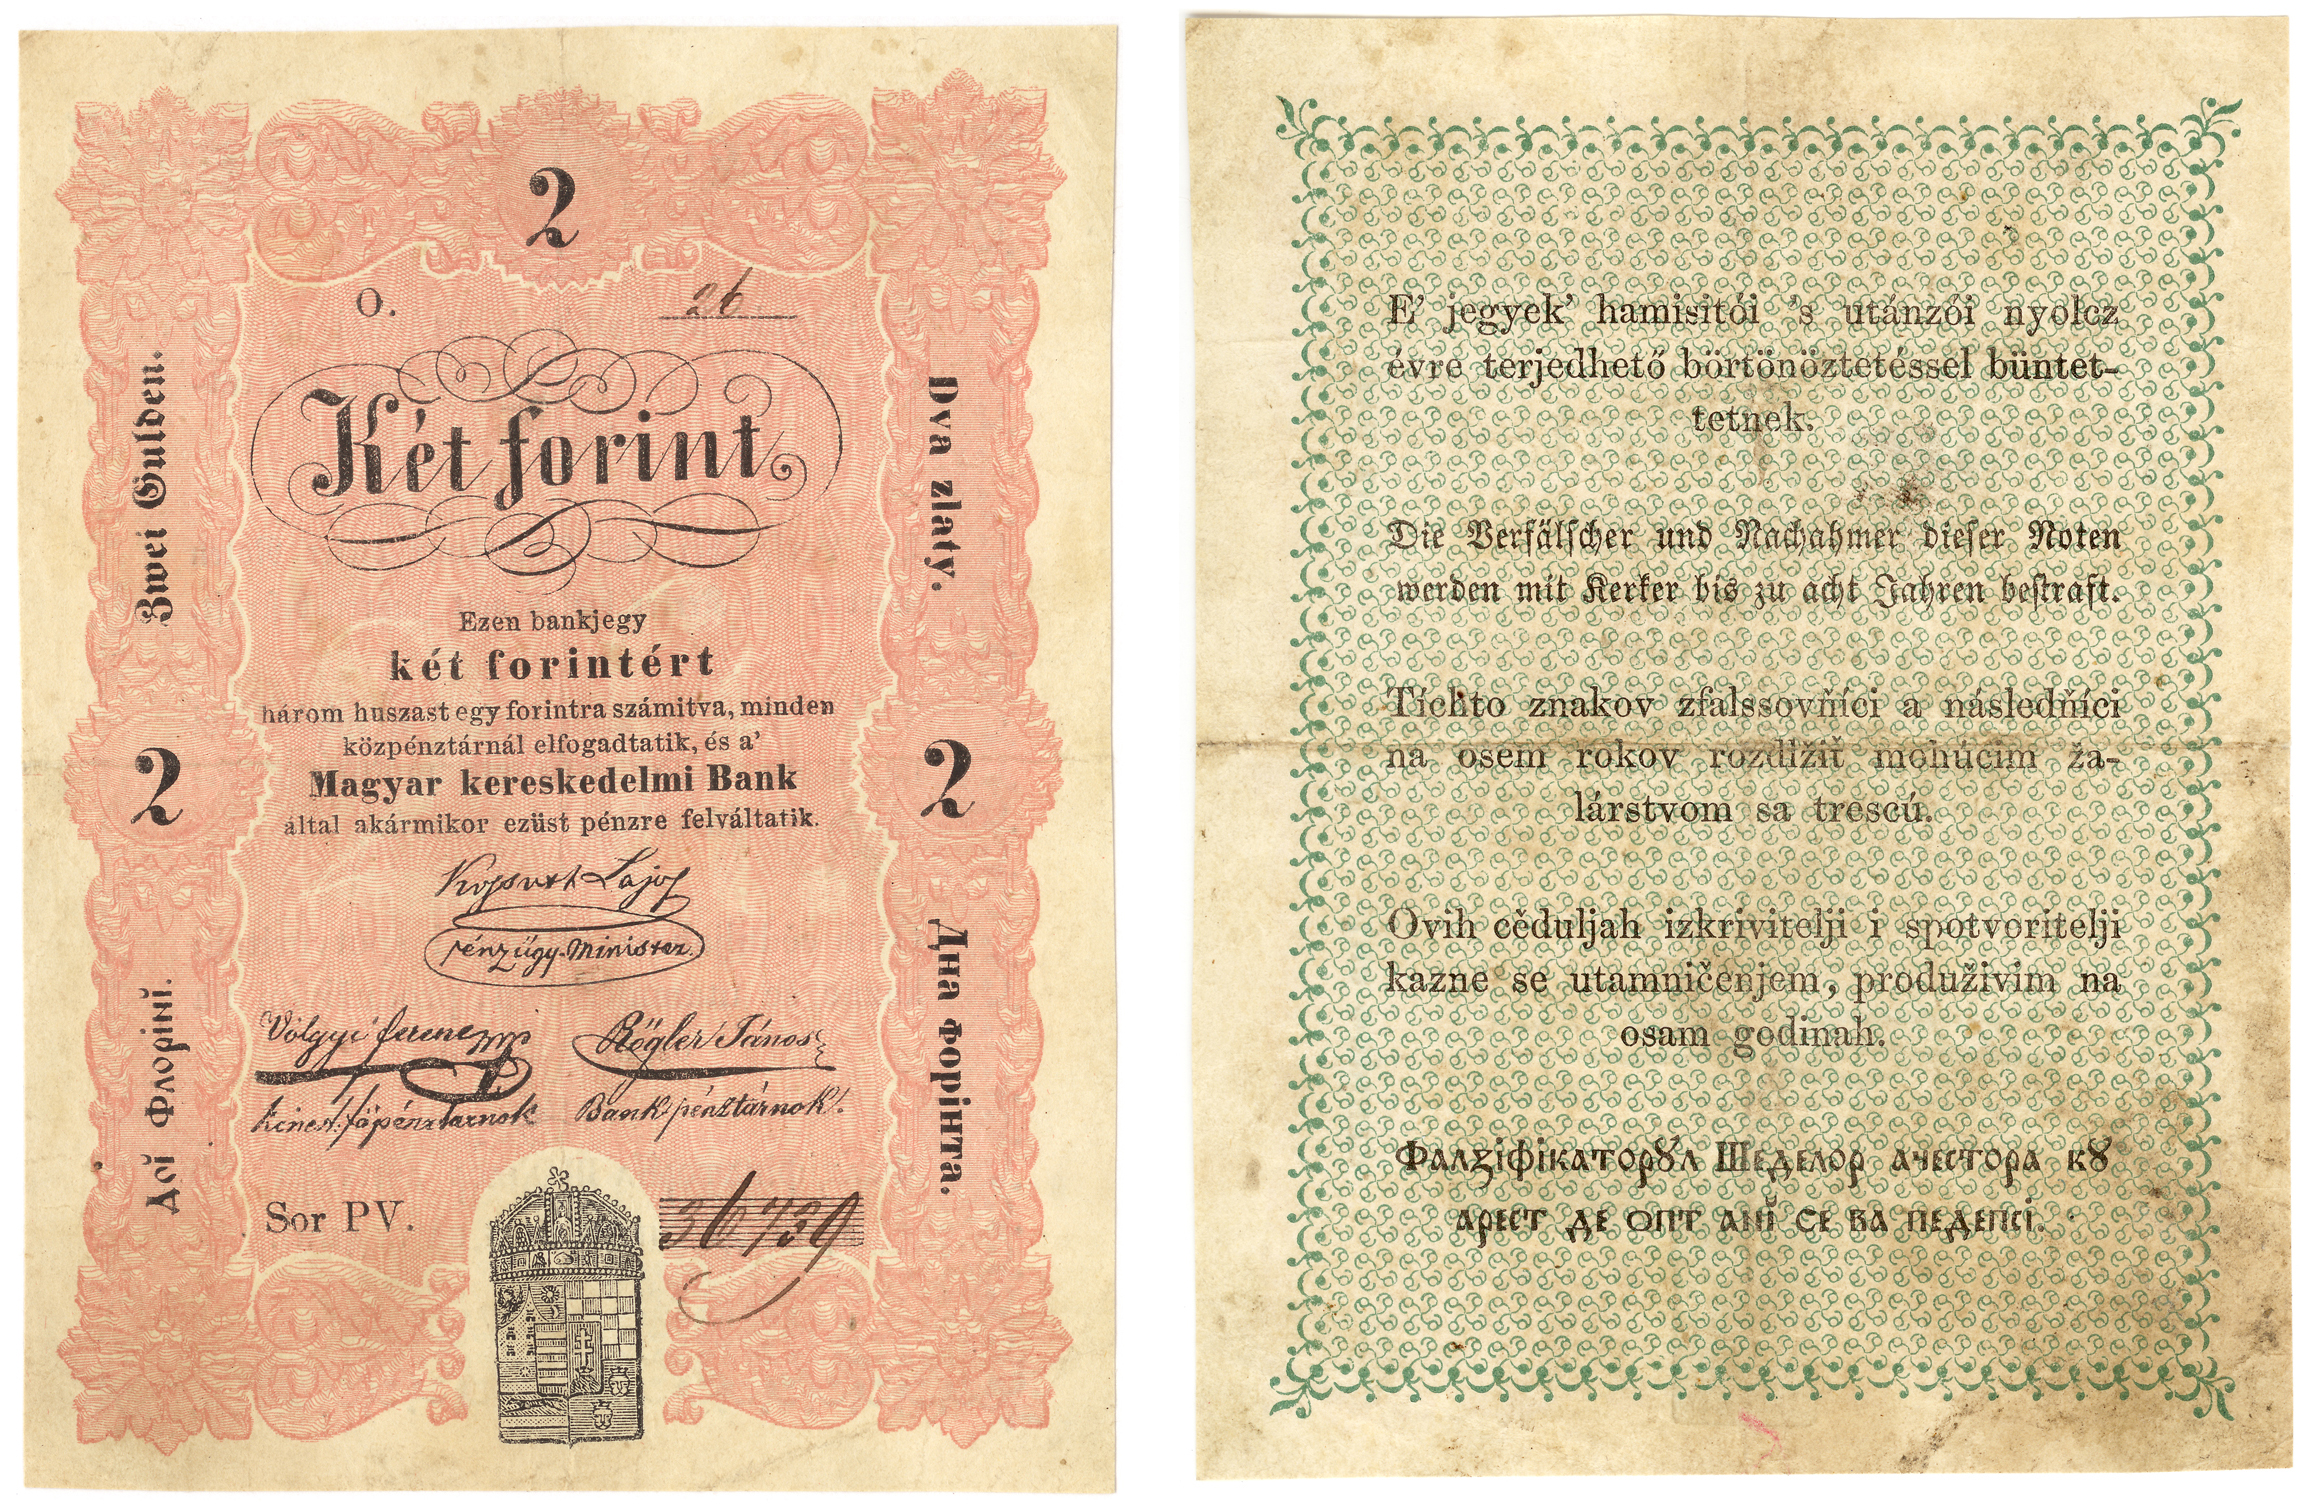 2
O. 26
Két forint
Zwei Gulden.
Dva zlaty.
Ezen bankjegy
két forintért
három huszast egy forintra számitva, minden
közpénztárnál elfogadtatik, és a'
Magyar kereskedelmi Bank
által akármikor ezüst pénzre felváltatik.
2
2
Kossuth Lajos
pénzügy-Minister.
Völgyi ferencz Rögler János
kincst. főpénztárnok Bank pénztárnok.
Дої Флорінї.
Два Форінта.
Sor PV. 36739
E' jegyek' hamisitói 's utánzói nyolcz
évre terjedhető börtönöztetéssel büntet-
tetnek.
Die Verfälscher und Nachahmer dieser Noten
werden mit Kerker bis zu acht Jahren bestraft.
Tíchto znakov zfalssovňíci a následňíci
na osem rokov rozdlžiť mohúcim ža-
lárstvom sa trescú.
Ovih cěduljah izkrivitelji i spotvoritelji
kazne se utamničenjem, produživim na
osam godinah.
Фалзіфікаторꙋл Шеделор ачестора кꙋ
арест де опт анї се ва педепсі.